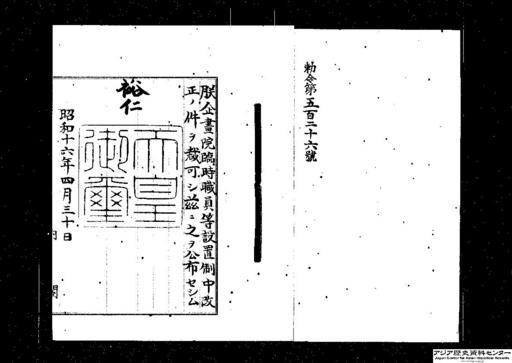 勅令第五百二十六號
朕企畫院臨時職員等設置制中改
正ノ件ヲ裁可シ茲ニ之ヲ公布セシム
裕仁
天皇
御璽
昭和十六年四月三十日
アジア歴史資料センター
Japan Center for Asian Historical Records